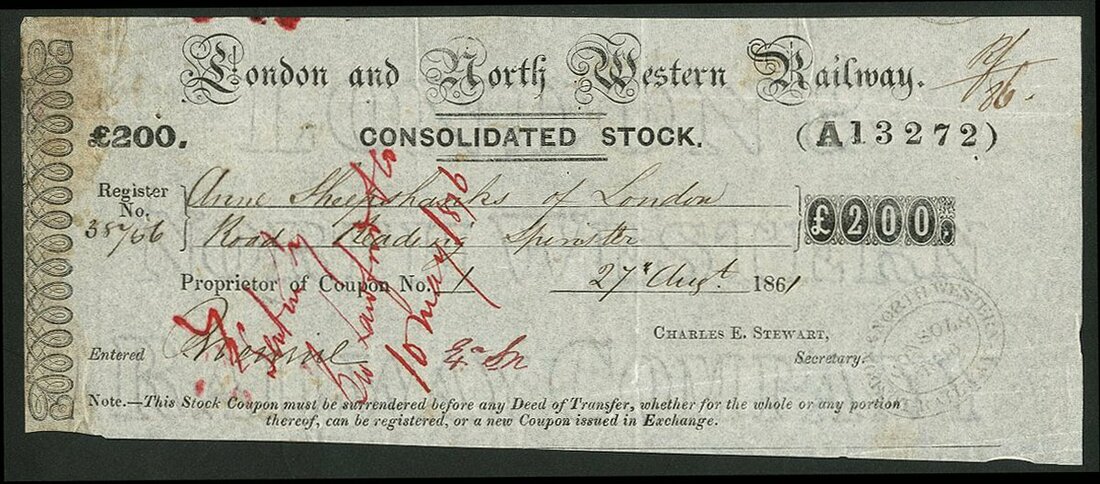 London and North Western Railway.
£200.
CONSOLIDATED STOCK.
(A13272)
Register
No.
Anne Sheepshanks of London
Road Reading Spinster
£200
Proprietor of Coupon No. 1
27 Augt. 1861
CHARLES E. STEWART,
Secretary.
Entered
10 May 1876
Note.—This Stock Coupon must be surrendered before any Deed of Transfer, whether for the whole or any portion
thereof, can be registered, or a new Coupon issued in Exchange.